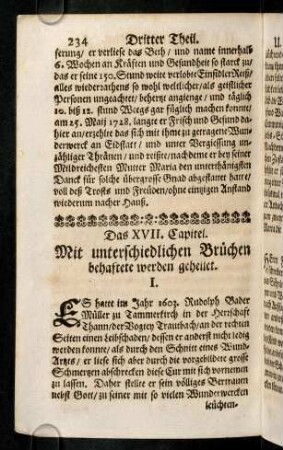 234 Dritter Theil.
serung/ er verliese das Beth/ und name innerhalb
6. Wochen an Kräften und Gesundheit so starck zu/
das er seine 150. Stund weite verlobte Einsidler Reiß/
alles widerrathens so wohl weltlicher/ als geistlicher
Personen ungeachtet/ behertzt angienge/ und täglich
10. biß 12. stund Weegs gar füglich machen konnte/
am 25. Maij 1728. langte er Frisch und Gesund da-
hier an/ erzehlte das sich mit ihme zu getragene Wun-
derwerck an Eidstatt/ und unter Vergiessung un-
zahliger Thränen/ und reißte/ nachdeme er bey seiner
Mildreichesten Mutter Maria den unterthänigsten
Danck für solche übergrosse Gnad abgestattet hatte/
voll deß Trosts und Freüden/ ohne einzigen Anstand
wiederum nacher Hauß.
Das XVII. Capitel.
Mit unterschiedlichen Brüchen
behaftete werden geheilet.
I.
ES hatte im Jahr 1603. Rudolph Bader
Müller zu Tammerkirch in der Herschaft
Thann/ der Vogtey Trautbach/ an der rechten
Seiten einen Leibschaden/ dessen er anderst nicht ledig
werden konnte/ als durch den Schnitt eines Wund-
Artztes/ er liese sich aber durch die vorgebildete grosse
Schmertzen abschrecken diese Cur mit sich vornemen
zu lassen. Daher stellte er sein völliges Vertrauen
nebst Gott/ zu seiner mit so vielen Wunderwercken
leüchten-